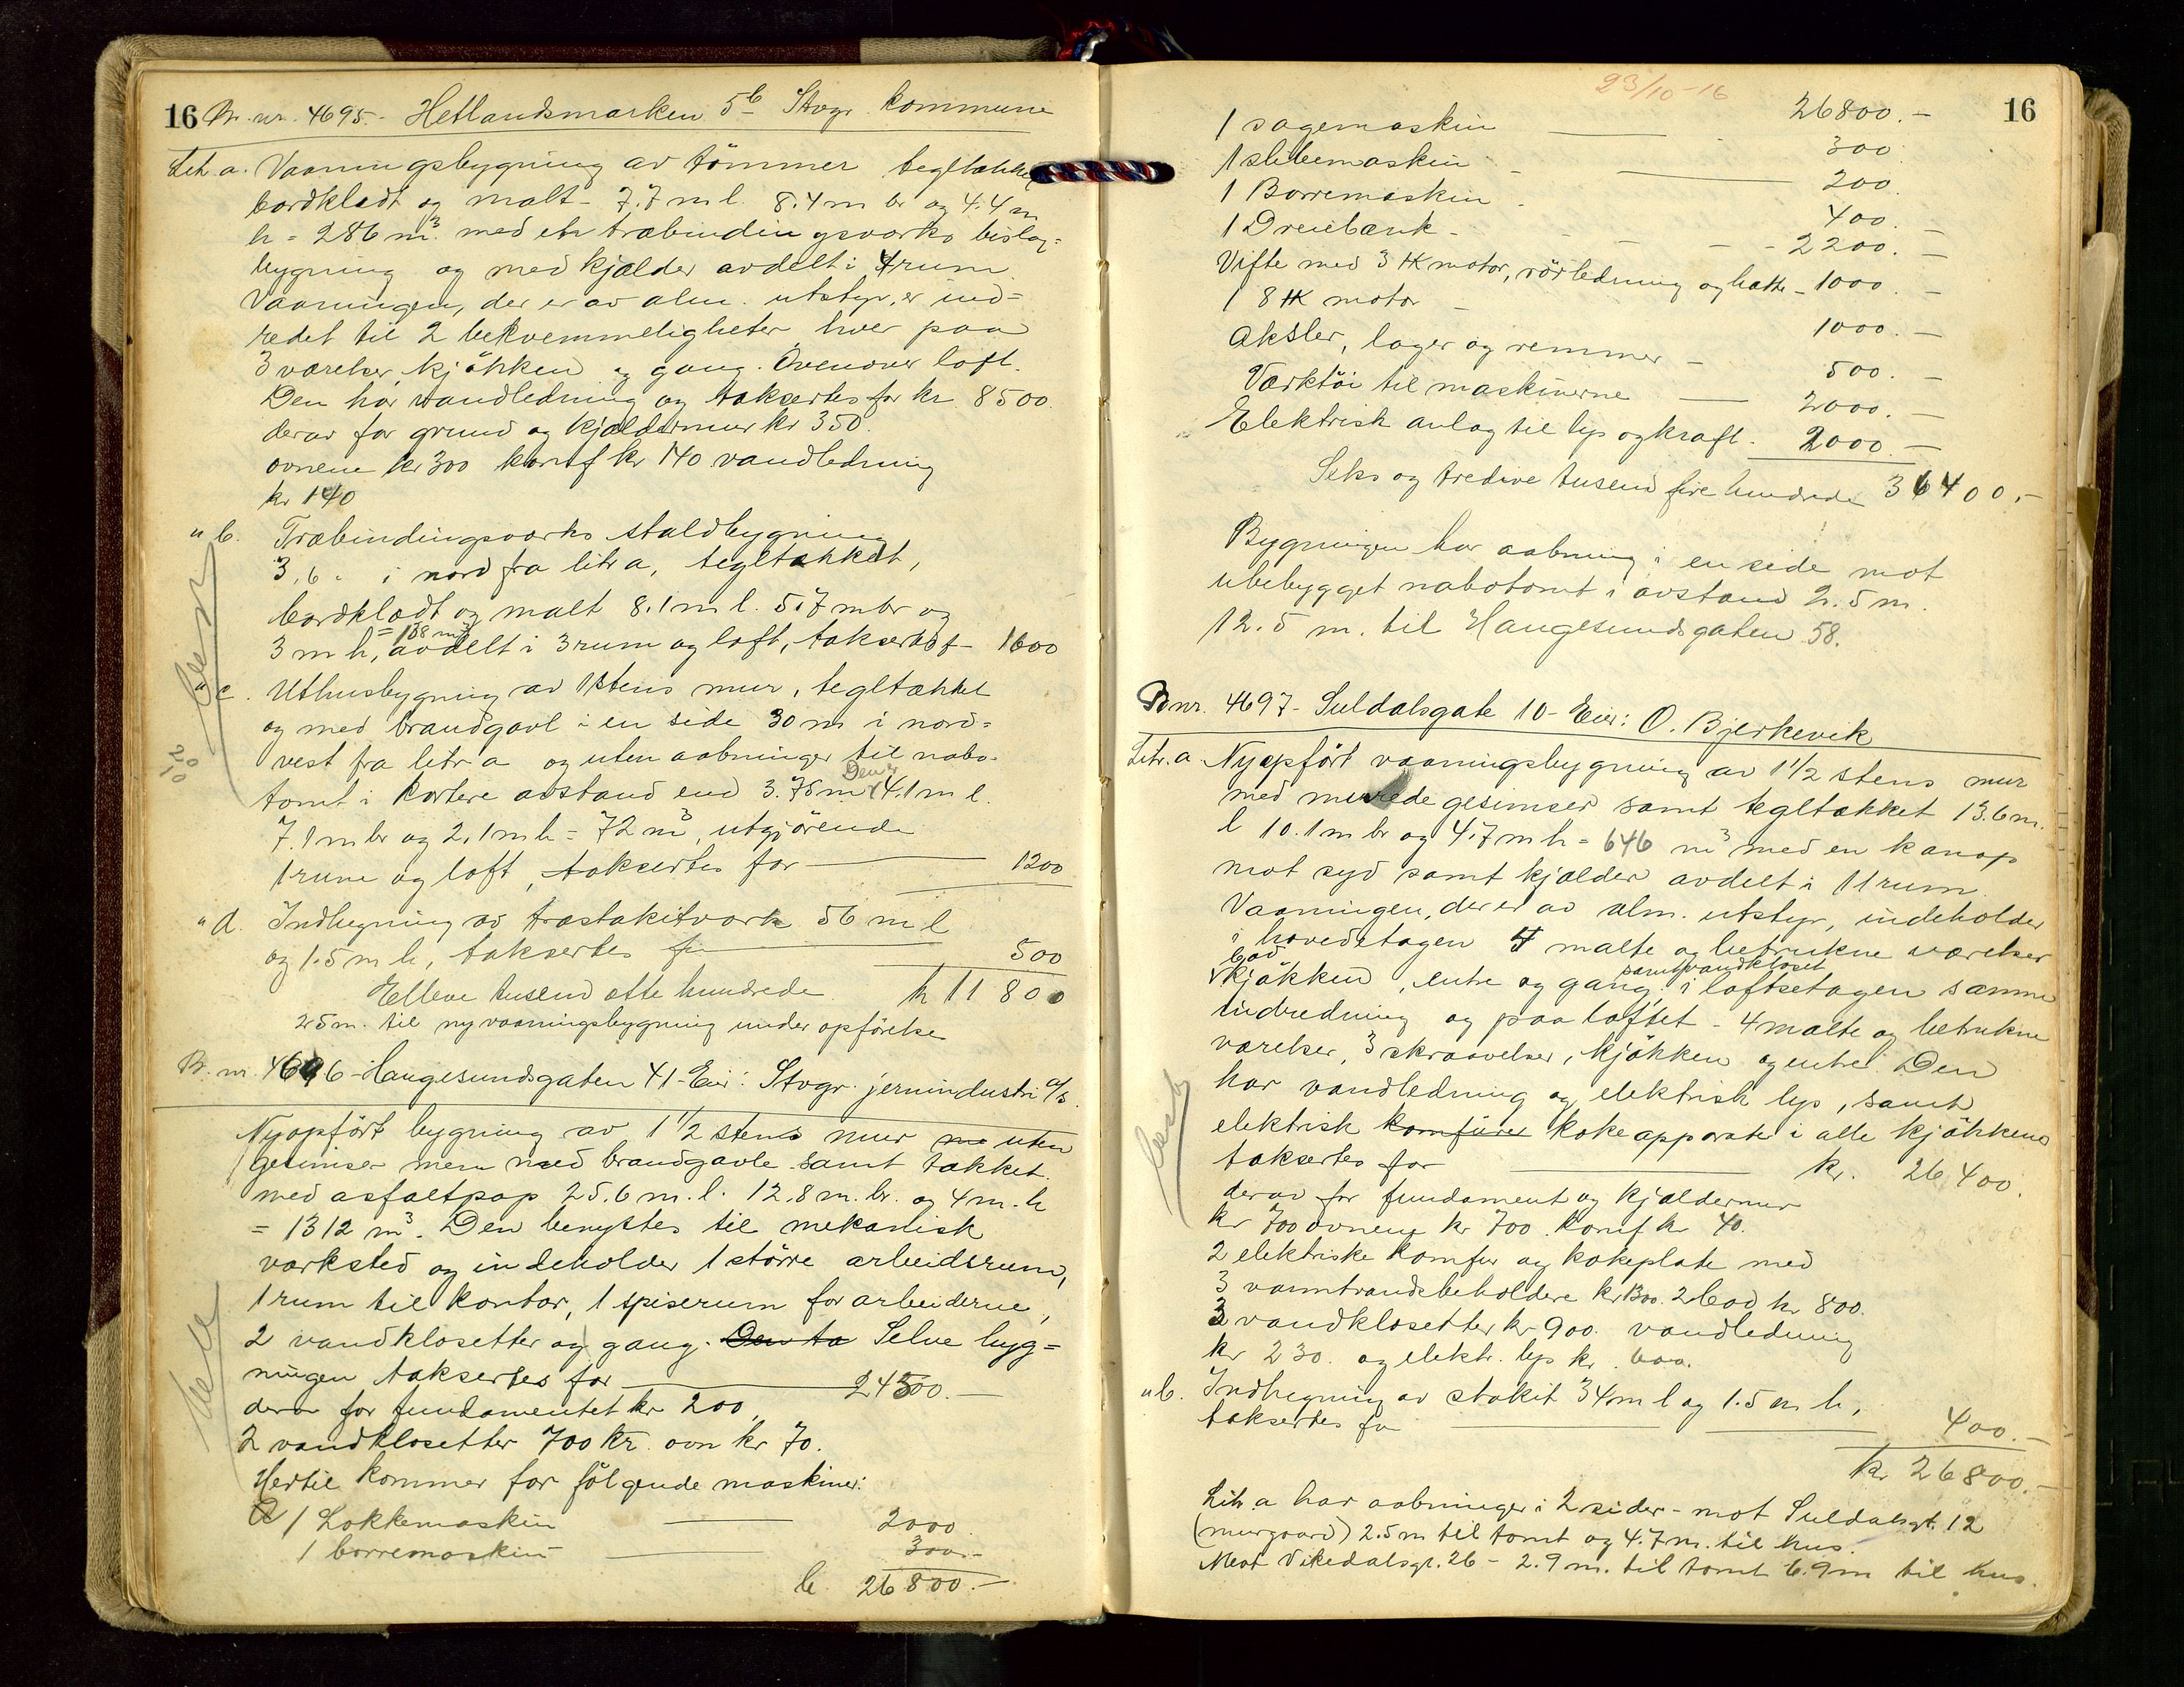 16 Br. nr. 4695 - Hetlandsmarken 5b Stvgr kommune
Litr a. Vaaningsbygning av tömmer tegltækket
bordklædt og malt - 7.7 m l. 8.4 m br og 4.4 m
h = 286 m³ med en træbindingsværks bislag=
bygning og med kjælder avdelt i 4 rum.
Vaaningen, der er av alm. utstyr, er ind=
redet til 2 bekvemmeligheter hver paa
3 værelser kjökken og gang. Ovenover loft.
Den har vandledning og takseres for kr 8500.
derav for grund og kjældermur kr 350.
ovnene kr 300 komf kr 140 vandledning
kr 140
" b. Træbindingsværks staldbygning
3,6 " i nord fra litr a, tegltækket,
bordklædt og malt 8.1 m l. 5.7 m br og
3 m h, = 138 m³ avdelt i 3 rum og loft, takseres f - 1600
" c. Uthusbygning av 1 stens mur, tegltækket
og med brandgavl i en side 30 m i nord=
vest fra litr a og uten aabninger til nabo-
tomt i kortere avstand end 3.75 m. Den er 4.1 m l.
7.1 m br og 2.1 m h = 72 m³, utgjörende
1 rum og loft, takseres for 1200
" d. Indhegning av træstakitværk 56 m l
og 1.5 m h, takseres for 500
Elleve tusend otte hundrede kr 11800
25 m. til ny vaaningsbygning under opförelse
Br. nr. 4696 - Haugesundsgaten 41 - Eier: Stvgr. jernindustri A/S.
Nyopfört bygning av 1 1/2 stens mur me uten
gesimser men med brandgavle samt tækket
med asfaltpap 25.6 m. l. 12.8 m. br. og 4 m. h
= 1312 m³. Den benyttes til mekanisk
værksted og indeholder 1 större arbeidsrum,
1 rum til kontor, 1 spiserum for arbeiderne,
2 vandklosetter og gang. Den ta Selve byg=
ningen takseres for 24500.-
derav for fundamentet kr 200,
2 vandklosetter 700 kr. ovn kr 70.
Hertil kommer for fölgende maskiner:
1 Lokkemaskin 2000.
1 borremaskin 300.-
26800.-
23/10-16
16
26800.-
1 sagemaskin 300
1 slibemaskin - 200.
1 Borremaskin - 400.
1 Dreiebænk - 2200.-
Vifte med 3 HK motor, rörledning og hætte - 1000.-
1 8 HK motor - 1000.-
Aksler, lager og remmer - 500.-
Værktöi til maskinerne 2000.-
Elektrisk anlæg til lys og kraft - 2000.-
Seks og tredive tusend fire hundrede 36400.-
Bygningen har aabning i en side mot
ubebygget nabotomt i avstand 2.5 m.
12.5 m. til Haugesundsgaten 58.
Br nr. 4697 - Suldalsgate 10 - Eier: O. Bjerkevik
Litr. a. Nyopfört vaaningsbygning av 1 1/2 stens mur
med murede gesimser samt tegltækket 13.6 m.
l 10.1 m br og 4.7 m h = 646 m³ med en kanap
mot syd samt kjælder avdelt i 11 rum.
Vaaningen, der er av alm. utstyr, indeholder
i hovedetagen 4 malte og betrukne værelser
bad
kjökken, entre og gang samt vandkloset i loftsetagen samme
indredning og paa loftet - 4 malte og betrukne
værelser, 3 skraavelser, kjökken og entre. Den
har vandledning og elektrisk lys, samt
elektrisk komfürer kokeapparater i alle kjökkener
takseres for kr. 26400.
derav for fundament og kjældermur
kr 700 ovnene kr 700. komf kr 40.
2 elektriske komfur og kokeplate med
3 varmtvandsbeholdere kr 1300. 2 bad kr 800.
3 vandklosetter kr 900. vandledning
kr 230. og elektr. lys kr. 600.
" b. Indhegning av stakit 34 m l og 1.5 m h,
takseres for 400.-
kr 26800.-
Litr. a har aabninger i 2 sider - mot Suldalsgt. 12
(murgaard) 2.5 m til tomt og 4.7 m. til hus.
Mot Vikedalsgt. 26 - 2.9 m. til tomt 6.9 m til hus.